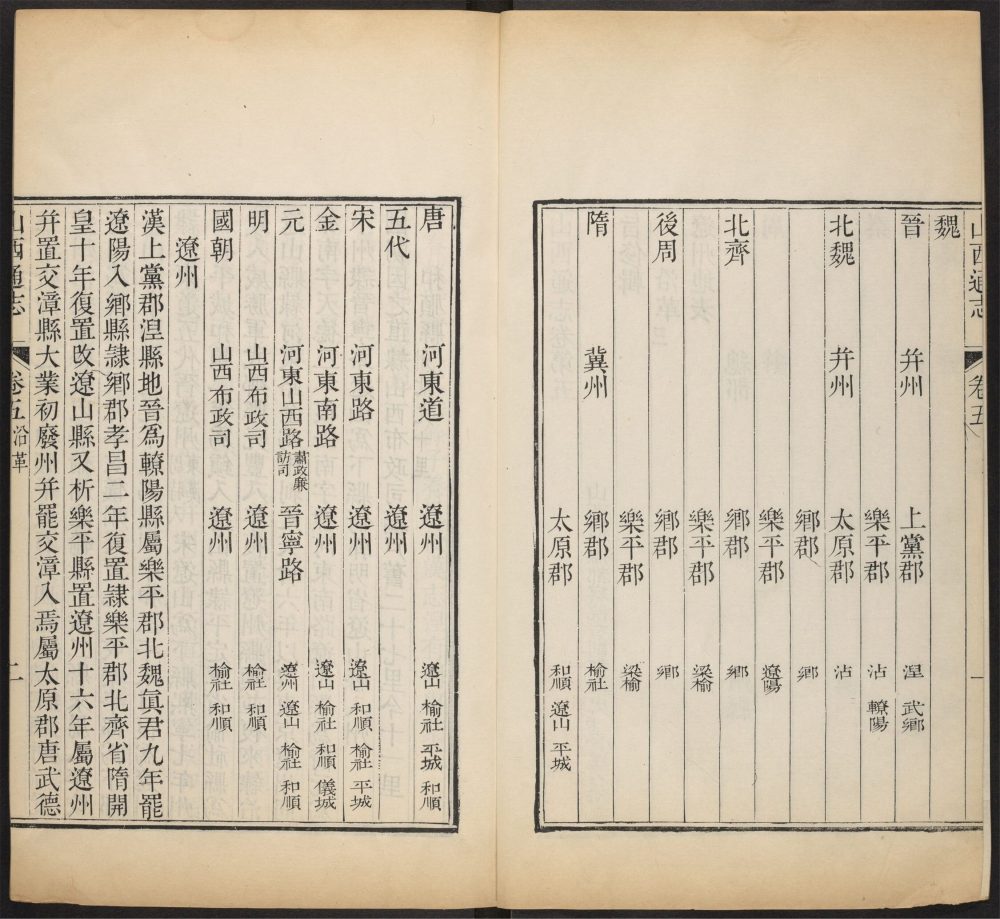 山西通志 卷五 一
魏
晉 幷州 上黨郡 涅 武鄉
樂平郡 沾 轑陽
北魏 幷州 太原郡 沾
鄉郡 鄉
樂平郡 遼陽
北齊 鄉郡 鄉
樂平郡 梁榆
後周 鄉郡 鄉
樂平郡 梁榆
隋 冀州 鄉郡 榆社
太原郡 和順 遼山 平城
唐 河東道 遼州 遼山 榆社 平城 和順
五代 遼州
宋 河東路 遼州 遼山 和順 榆社 平城
金 河東南路 遼州 遼山 榆社 和順 儀城
元 河東山西路肅政廉訪司 晉寧路 遼州 遼山 榆社 和順
明 山西布政司 遼州 榆社 和順
國朝 山西布政司 遼州 榆社 和順
遼州
漢上黨郡涅縣地晉爲轑陽縣屬樂平郡北魏眞君九年罷
遼陽入鄉縣隷鄉郡孝昌二年復置隷樂平郡北齊省隋開
皇十年復置改遼山縣又析樂平縣置遼州十六年屬遼州
幷置交漳縣大業初廢州幷罷交漳入焉屬太原郡唐武德
山西通志 卷五沿革 二